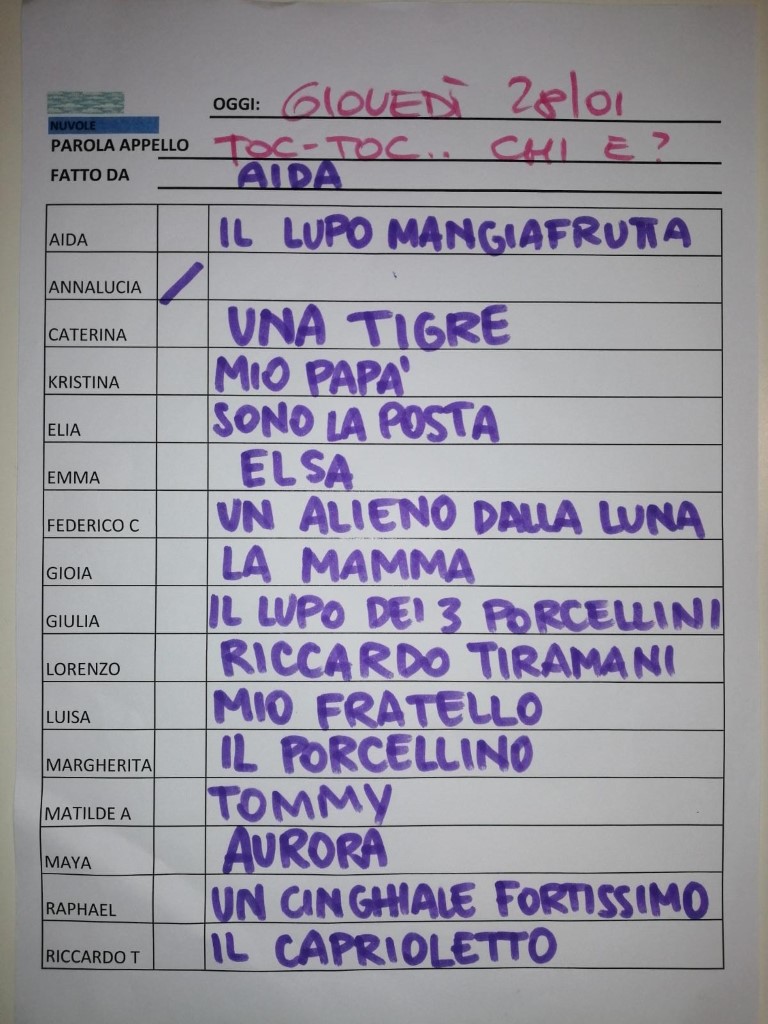 OGGI: GIOVEDÌ 28/01
NUVOLE
PAROLA APPELLO TOC-TOC.. CHI E?
FATTO DA AIDA
AIDA IL LUPO MANGIAFRUTTA
ANNALUCIA /
CATERINA UNA TIGRE
KRISTINA MIO PAPA'
ELIA SONO LA POSTA
EMMA ELSA
FEDERICO C UN ALIENO DALLA LUNA
GIOIA LA MAMMA
GIULIA IL LUPO DEI 3 PORCELLINI
LORENZO RICCARDO TIRAMANI
LUISA MIO FRATELLO
MARGHERITA IL PORCELLINO
MATILDE A TOMMY
MAYA AURORA
RAPHAEL UN CINGHIALE FORTISSIMO
RICCARDO T IL CAPRIOLETTO